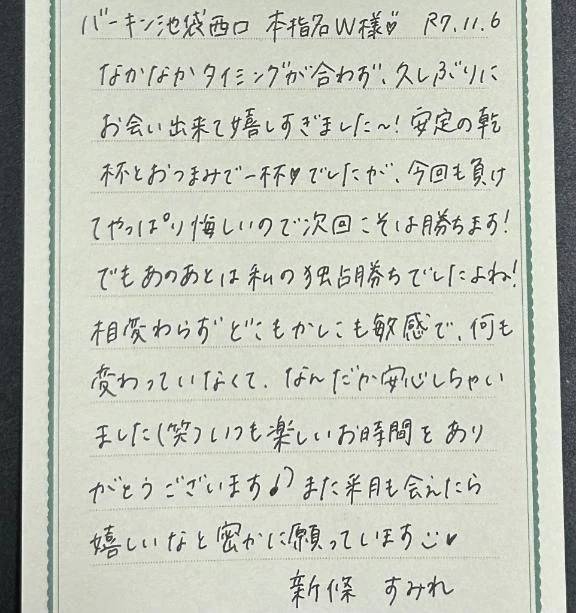 バーキン池袋西口 本指名W様♡ R7.11.6
なかなかタイミングが合わず、久しぶりに
お会い出来て嬉しすぎました〜!安定の乾
杯とおつまみで一杯♥でしたが、今回も負け
てやっぱり悔しいので次回こそは勝ちます!
でもあのあとは私の独占勝ちでしたよね!
相変わらずどこもかしこも敏感で、何も
変わっていなくて、なんだか安心しちゃい
ました(笑)いつも楽しいお時間をあり
がとうございます♪また来月も会えたら
嬉しいなと密かに願っています☺♥
新條 すみれ